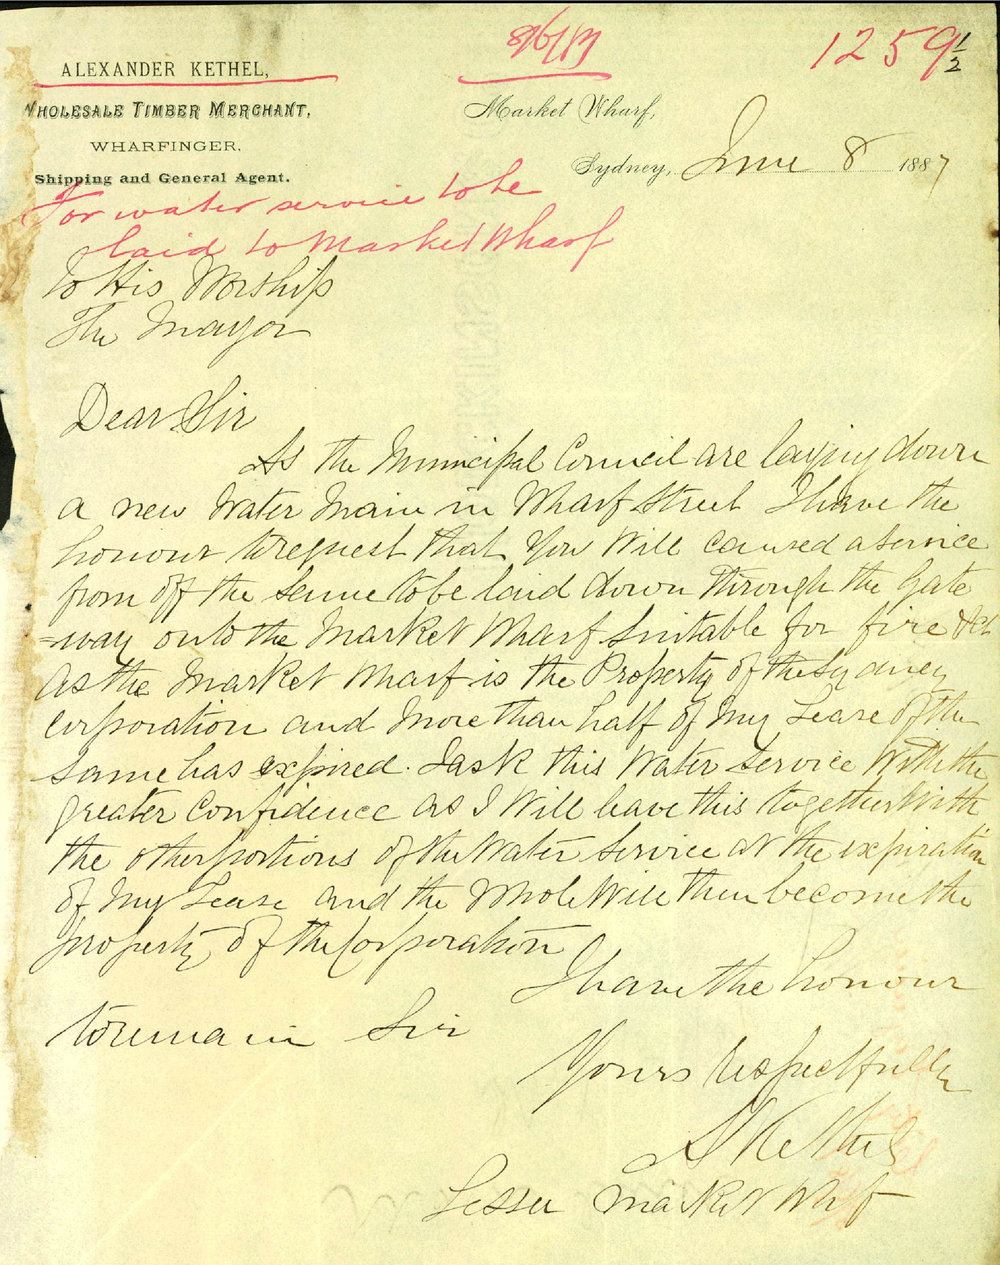 8/6/87
1259 1/2
ALEXANDER KETHEL,
WHOLESALE TIMBER MERCHANT,
WHARFINGER,
Shipping and General Agent.
Market Wharf,
Sydney, June 8 1887
For water service to be
laid to Market Wharf
To His Worship
The Mayor
Dear Sir
As the Municipal Council are laying down
a new Water Main in Wharf Street I have the
honour to request that You Will caused a service
from off the same to be laid down through the Gate
=way onto the Market Wharf suitable for fire &ct
As the Market Wharf is the Property of the Sydney
Corporation and More than half of My Lease of the
same has expired. I ask this Water Service With the
greater Confidence as I Will leave this together With
the other portions of the Water Service at the expiration
of My Lease and the Whole Will then become the
property of the Corporation
I have the honour
to remain Sir
Yours Respectfully
A Kethel
Lessee Market Whf